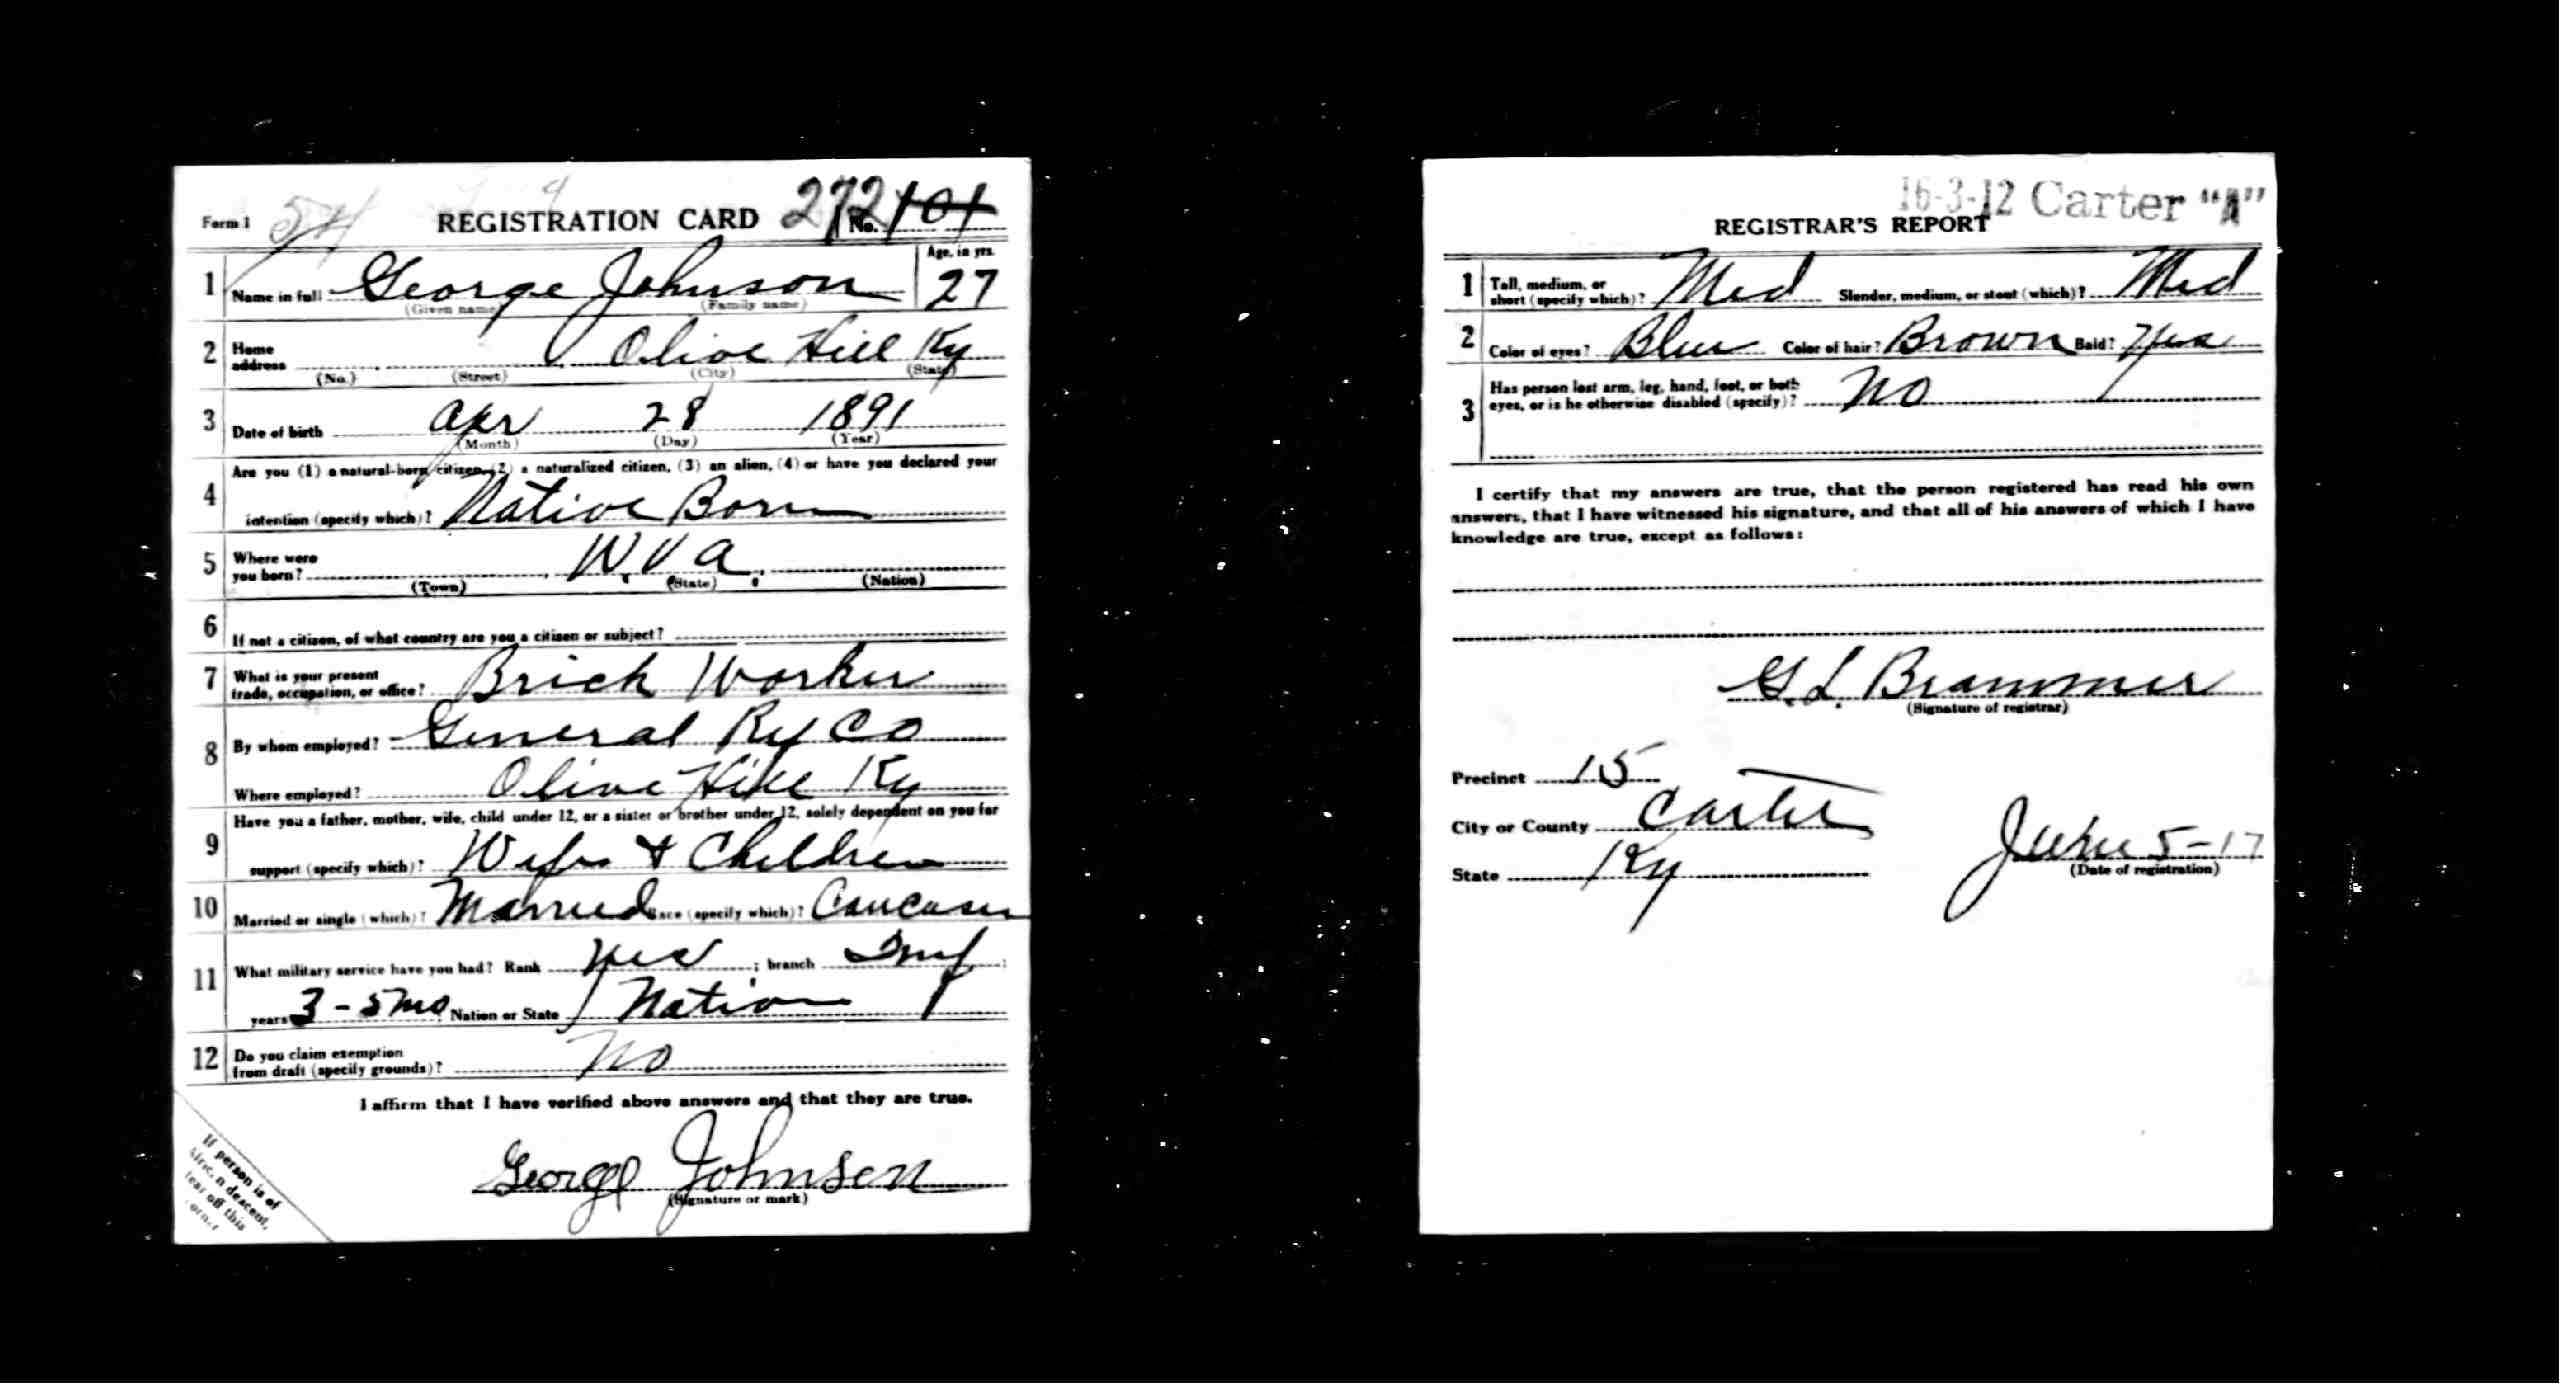 Form 1 54 REGISTRATION CARD 272 No. 101
1 Name in full George Johnson Age, in yrs. 27
(Given name) (Family name)
2 Home address Olive Hill Ky
(No.) (Street) (City) (State)
3 Date of birth Apr 28 1891
(Month) (Day) (Year)
4 Are you (1) a natural-born citizen, (2) a naturalized citizen, (3) an alien, (4) or have you declared your
intention (specify which)? Native Born
5 Where were you born? W. Va.
(Town) (State) (Nation)
6 If not a citizen, of what country are you a citizen or subject?
7 What is your present trade, occupation, or office? Brick Worker
8 By whom employed? General Ry Co
Where employed? Olive Hill Ky
9 Have you a father, mother, wife, child under 12, or a sister or brother under 12, solely dependent on you for
support (specify which)? Wife & Children
10 Married or single (which)? Married Race (specify which)? Caucasian
11 What military service have you had? Rank ; branch Inf ;
years 3 - 5 mo Nation or State Nation
12 Do you claim exemption from draft (specify grounds)? No
I affirm that I have verified above answers and that they are true.
George Johnson
(Signature or mark)
If person is of
African descent,
tear off this
corner
16-3-12 Carter "A"
REGISTRAR'S REPORT
1 Tall, medium, or short (specify which)? Med Slender, medium, or stout (which)? Med
2 Color of eyes? Blue Color of hair? Brown Bald? Yes
3 Has person lost arm, leg, hand, foot, or both eyes, or is he otherwise disabled (specify)? No
I certify that my answers are true, that the person registered has read his own
answers, that I have witnessed his signature, and that all of his answers of which I have
knowledge are true, except as follows:
G. L. Brammer
(Signature of registrar)
Precinct 15
City or County Carter
State Ky
June 5-17
(Date of registration)